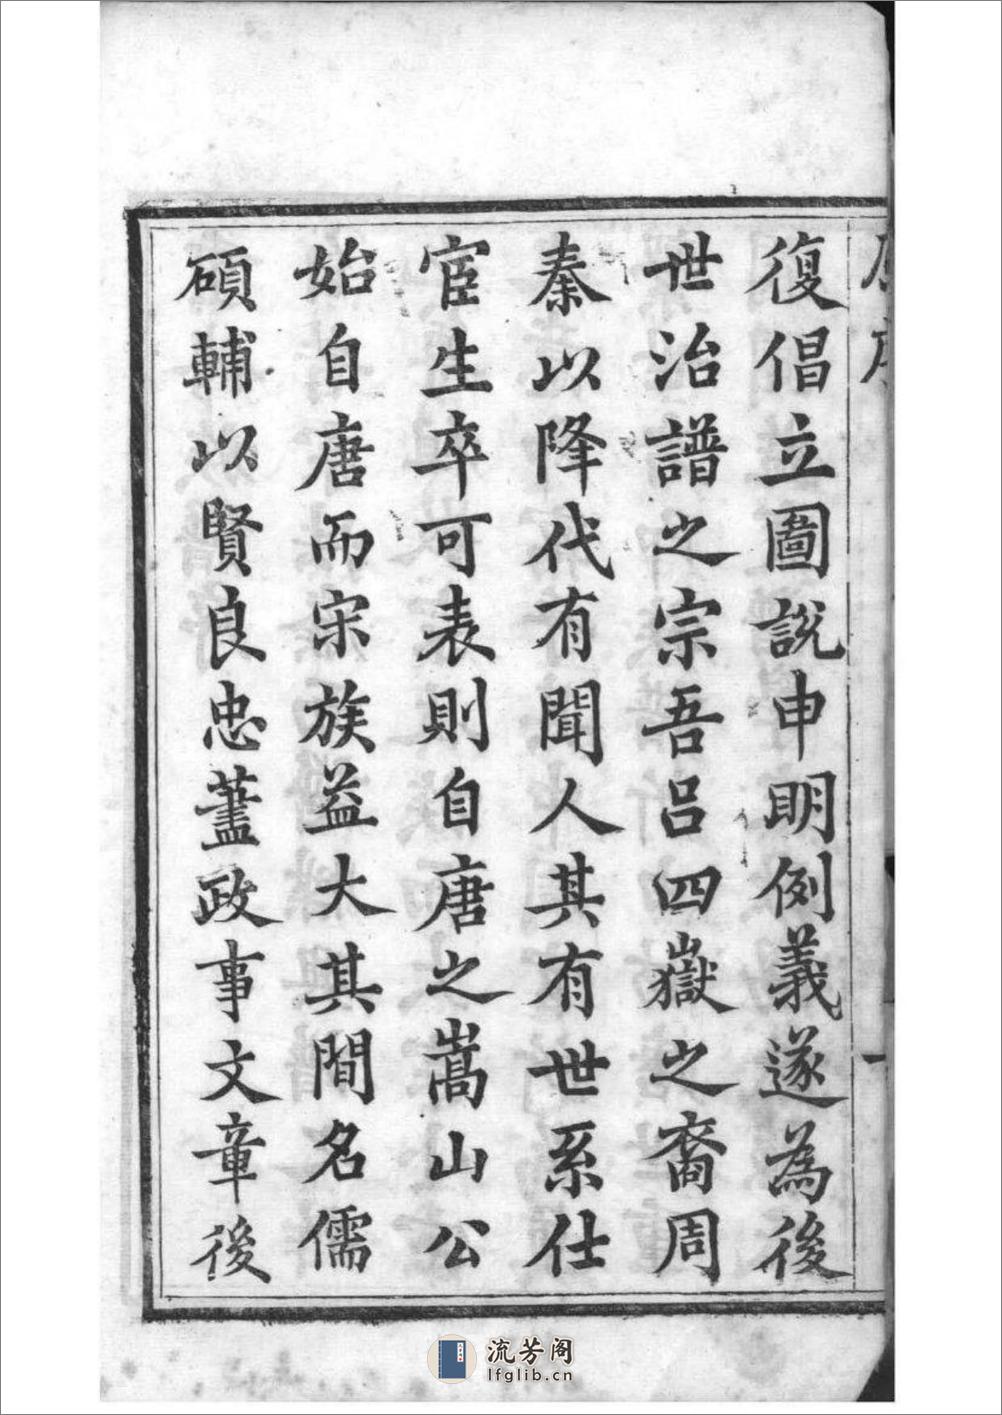 復倡立圖說申明例義遂為後
世治譜之宗吾呂四嶽之裔周
秦以降代有聞人其有世系仕
宦生卒可表則自唐之嵩山公
始自唐而宋族益大其間名儒
碩輔以賢良忠藎政事文章後
流芳阁
lfglib.cn